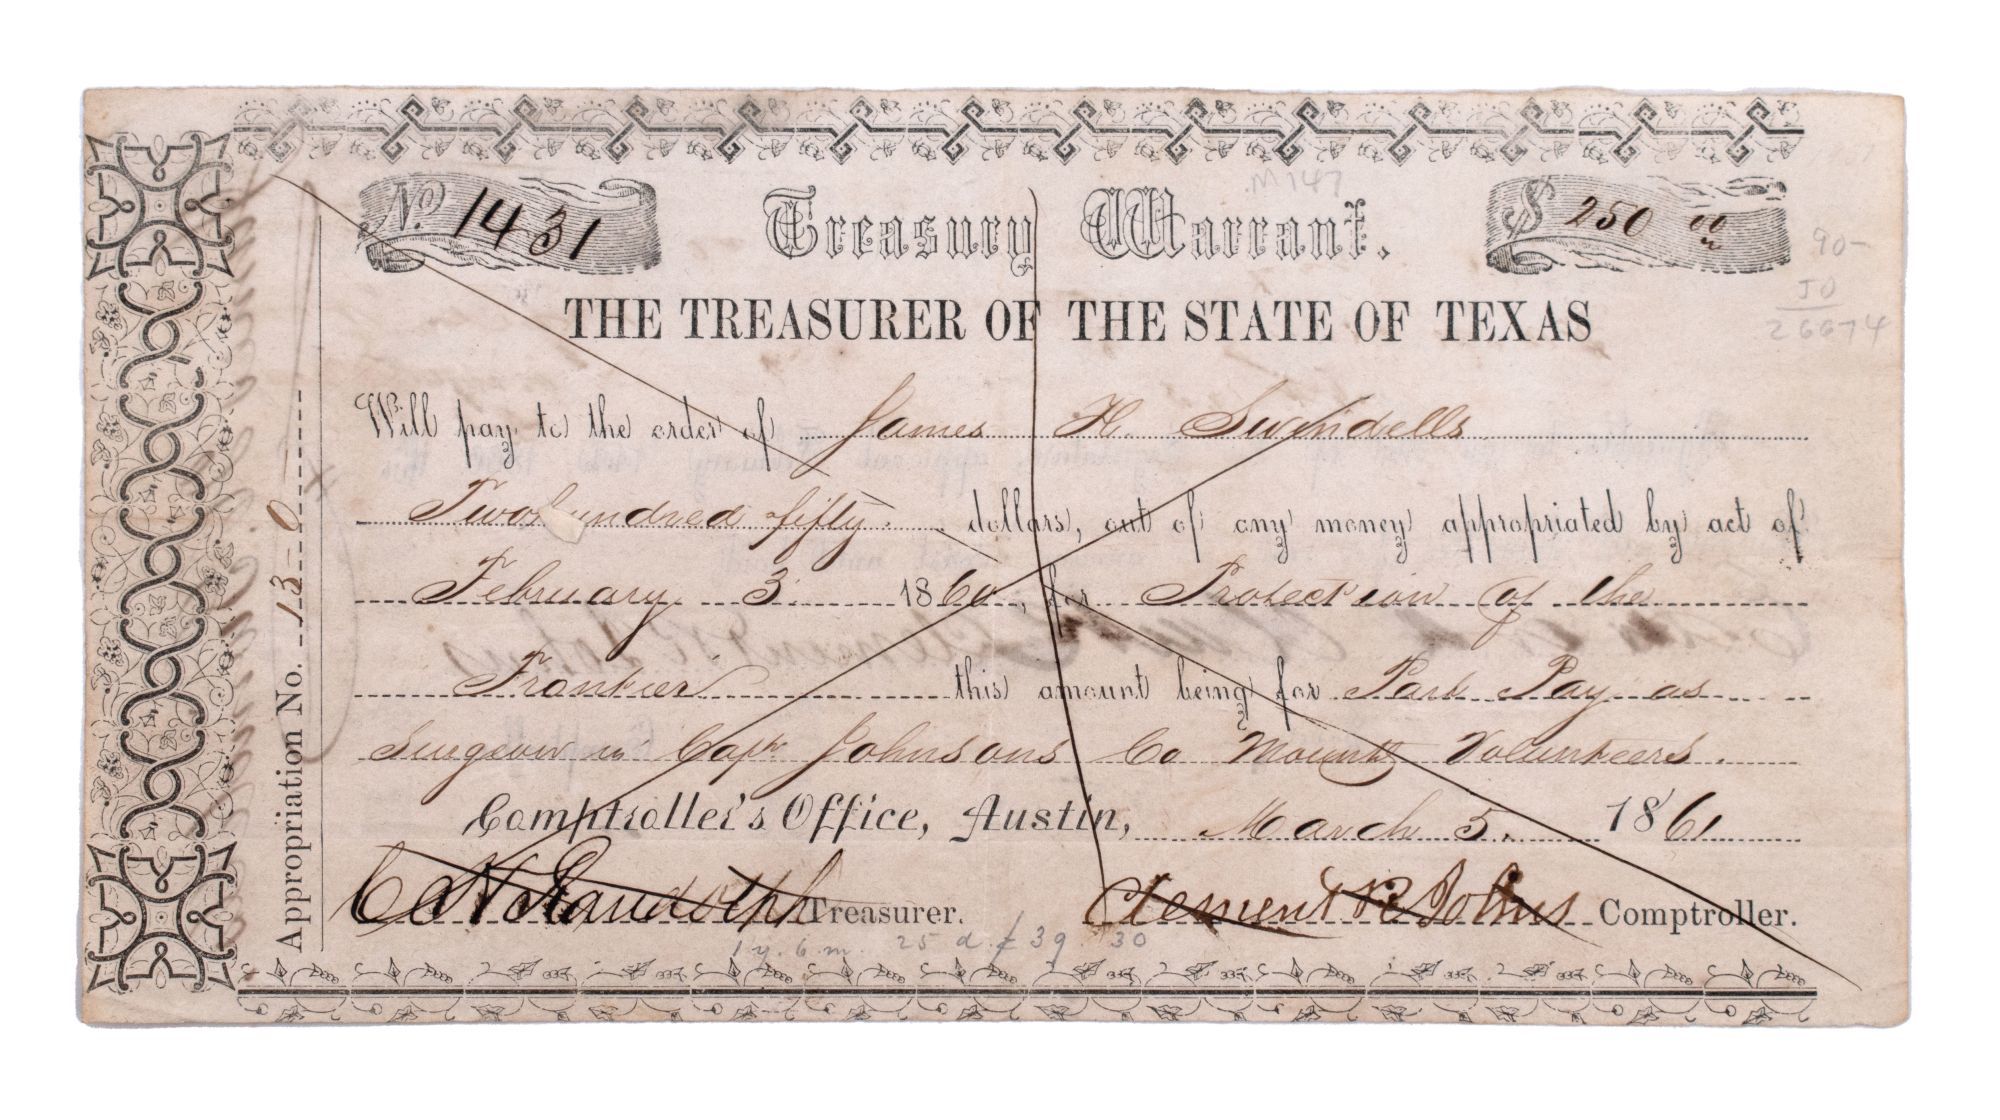 M147
No. 1431 Treasury Warrant. $ 250 00
90-
50
26674
THE TREASURER OF THE STATE OF TEXAS
Will pay to the order of James H. Swindells
Two hundred fifty dollars, out of any money appropriated by act of
February 3 1860, for Protection of the
Frontier this amount being for Part Pay as
Surgeon in Capt Johnsons Co Mountd Volunteers.
Comptroller's Office, Austin, March 5. 1861
C H Randolph Treasurer. Clement R Johns Comptroller.
1 y. 6 m. 25 d. 39 30
Appropriation No. 13-0